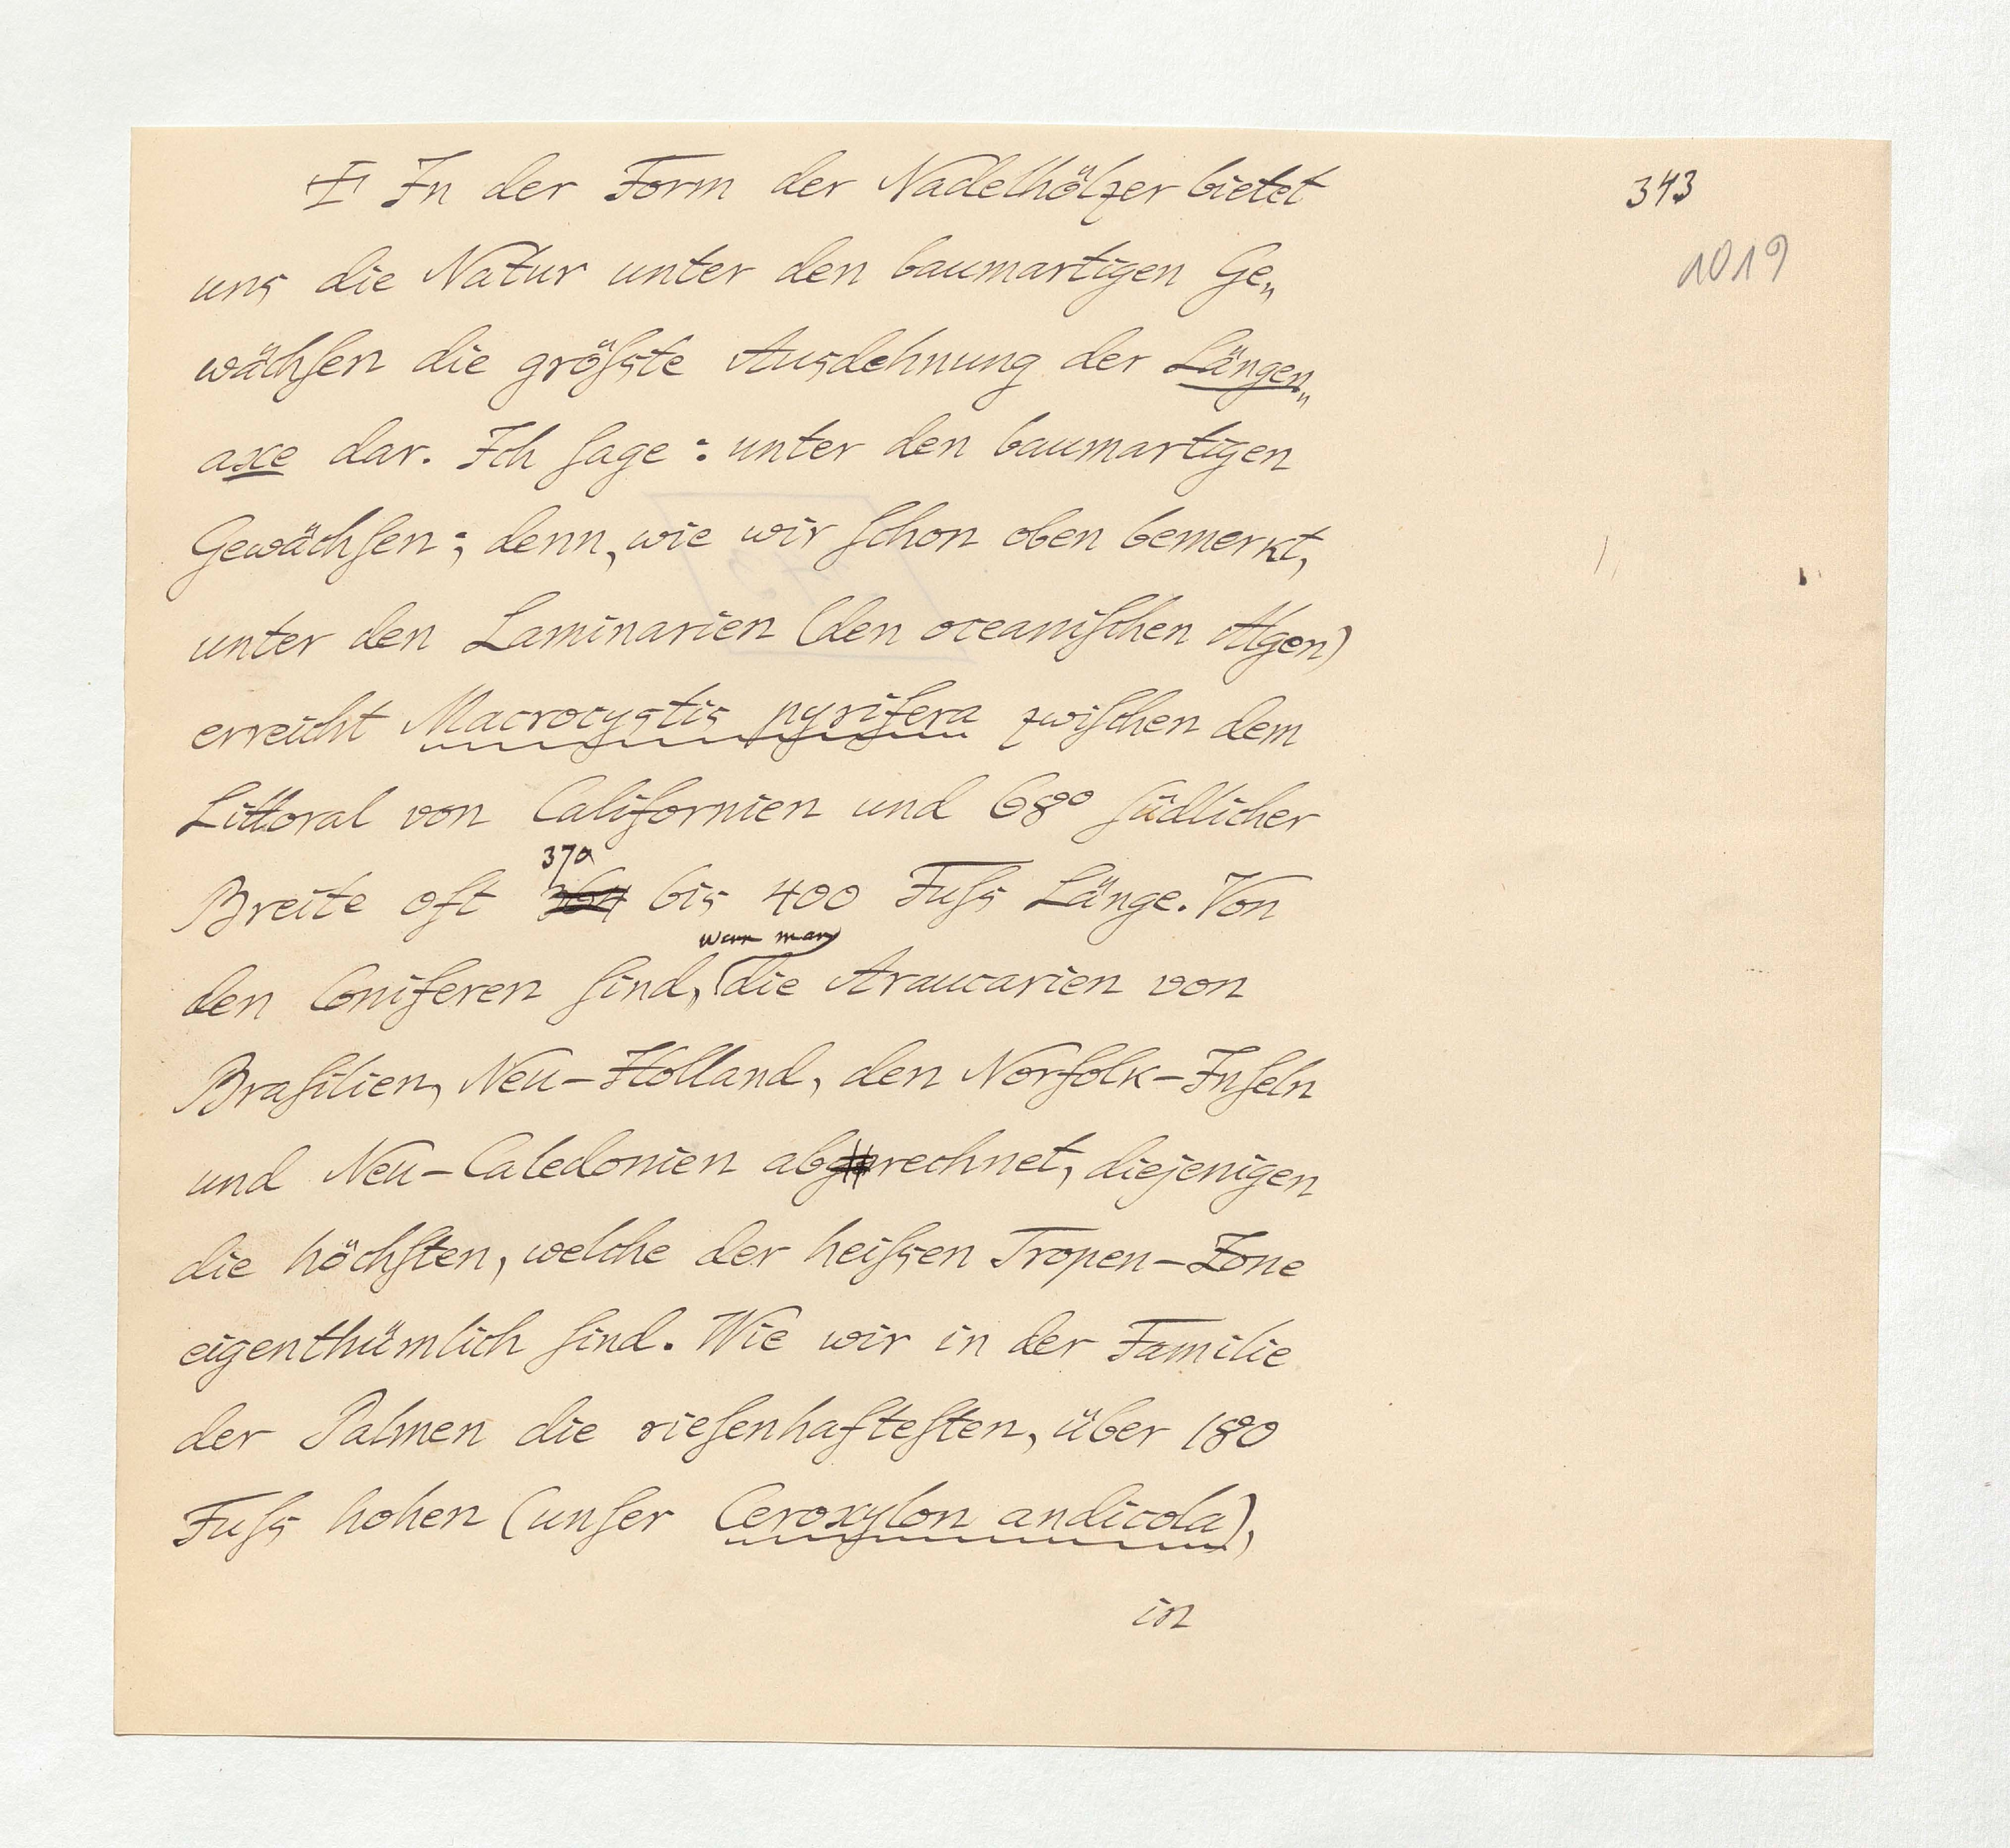 343
1019
In der Form der Nadelhölzer bietet
uns die Natur unter den baumartigen Ge„
wächſen die gröſste Ausdehnung der Längen„
axe dar. Ich ſage: unter den baumartigen
Gewächſen; denn, wie wir ſchon oben bemerkt,
unter den Laminarien (den oceaniſchen Algen)
erreicht Macrocystis pyrifera zwiſchen dem
Littoral von Californien und 68° ſüdlicher
370
Breite oft bis 400 Fuſs Länge. Von
wenn man
den Coniferen ſind, die Araucarien von
Braſilien, Neu-Holland, den Norfolk-Inſeln
und Neu-Caledonien abrechnet, diejenigen
die höchſten, welche der heiſsen Tropen-Zone
eigenthümlich ſind. Wie wir in der Familie
der Palmen die rieſenhafteſten, über 180
Fuſs hohen (unſer Ceroxylon andicola),
in